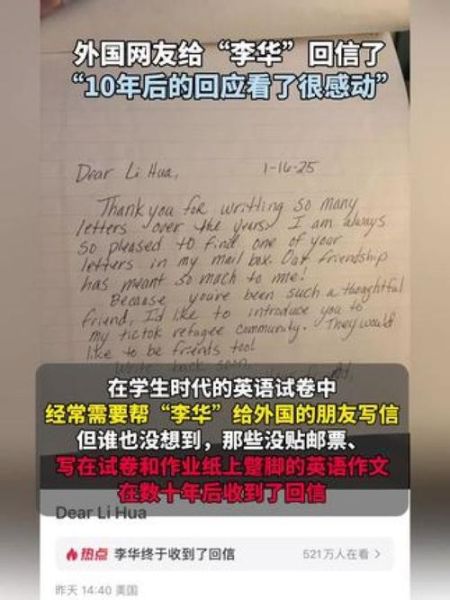 外国网友给“李华”回信了
“10年后的回应看了很感动”
Dear Li Hua, 1-16-25
Thank you for writting so many
letters over the years. I am always
so pleased to find one of your
letters in my mail box. Our friendship
has meant so much to me!
Because you've been such a thoughtful
friend, I'd like to introduce you to
my tictok refugee community. They would
like to be friends too!
Write back soon
在学生时代的英语试卷中
经常需要帮“李华”给外国的朋友写信
但谁也没想到，那些没贴邮票、
写在试卷和作业纸上蹩脚的英语作文
在数十年后收到了回信
Dear Li Hua
热点 李华终于收到了回信 521万人在看 >
昨天 14:40 美国